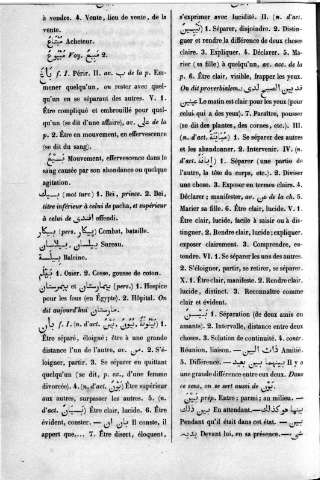 à vendre. 4. Vente, lieu de vente, de la
vente.
مُبْتَاعٌ Acheteur.
مَبْيُوعٌ Voy. مَبِيعٌ 2.
بَاغَ f. I. Périr. II. ac. ب de la p. Em-
mener quelqu'un, ou rester avec quel-
qu'un en se séparant des autres. V. 1.
Être compliqué et embrouillé pour quel-
qu'un (se dit d'une affaire), ac. على de la
p. 2. Être en mouvement, en effervescence
(se dit du sang).
Mouvement, effervescence dans le
sang causée par son abondance ou quelque
agitation.
بيك (mot turc) 1. Bei, prince. 2. Bei,
titre inférieur à celui de pacha, et supérieur
à celui de افندى effendi.
بيكار (pers.) Combat, bataille.
بيلسان Sureau.
Baleine.
1. Osier. 2. Cosse, gousse de coton.
بيمارستان (pers.) 1. Hospice
pour les fous (en Égypte). 2. Hôpital. On
dit aujourd'hui مارستان.
بَانَ f. I. (n. d'act.
Être séparé, éloigné; être à une grande
distance l'un de l'autre, av. من. 2. S'é-
loigner, partir. 3. Se séparer en quittant
quelqu'un (se dit, p. ex., d'une femme
divorcée). 4. (n. d'act. بَيْنٌ) Être supérieur
aux autres, surpasser les autres. 5. (n.
d'act. بَيَانٌ) Être clair, lucide. 6. Être
évident, constater. — بان ان Il conste, il
appert que,... 7. Être disert, éloquent,
s'exprimer avec lucidité. II. (n. d'act.
1. Séparer, disjoindre. 2. Distin-
guer et rendre la différence de deux choses
claire. 3. Expliquer. 4. Déclarer. 5. Ma-
rier (sa fille) à quelqu'un, av. acc. de la
p. 6. Être clair, visible, frapper les yeux.
On dit proverbialem.: قد بين الصبح لذى
عينين Le matin est clair pour les yeux (pour
celui qui a des yeux). 7. Paraître, pousser
(se dit des plantes, des cornes, etc.). III.
(n. d'act. مُبَايَنَةٌ) 1. Se séparer des autres
et les abandonner. 2. Intervenir. IV. (n.
d'act. إِبَانَةٌ) 1. Séparer (une partie de
l'autre, la tête du corps, etc.). 2. Diviser
une chose. 3. Exposer en termes clairs. 4.
Déclarer; manifester, av. من de la ch. 5.
Marier sa fille. 6. Être clair, lucide. V. 1.
Être clair, lucide, facile à saisir ou à dis-
tinguer. 2. Rendre clair, lucide; expliquer,
exposer clairement. 3. Comprendre, en-
tendre. VI. 1. Se séparer les uns des autres.
2. S'éloigner, partir, se retirer, se séparer.
X. 1. Être clair, manifeste. 2. Rendre clair,
lucide, distinct. 3. Reconnaître comme
clair et évident.
بَيْنٌ 1. Séparation (de deux amis ou
amants). 2. Intervalle, distance entre deux
choses. 3. Solution de continuité. 4. contr.
Réunion, liaison. — ذات البين Amitié.
5. Différence. — بينهما بين بعيد Il y a
une grande différence entre eux deux. Dans
ce sens, on se sert aussi de بَوْنٌ.
بَيْنَ prép. Entre; parmi; au milieu. —
بينما هو كذلك En attendant. — بين ذلك
Pendant qu'il était dans cet état. — بين
يديه Devant lui, en sa présence. — من